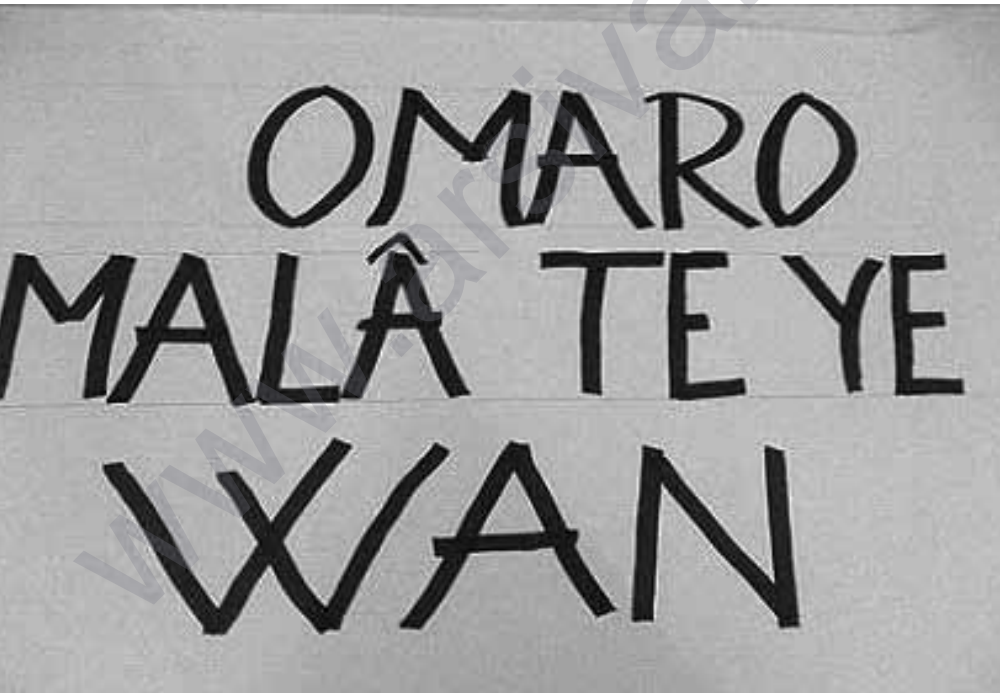 OMARO
MALÂ TE YE
WAN